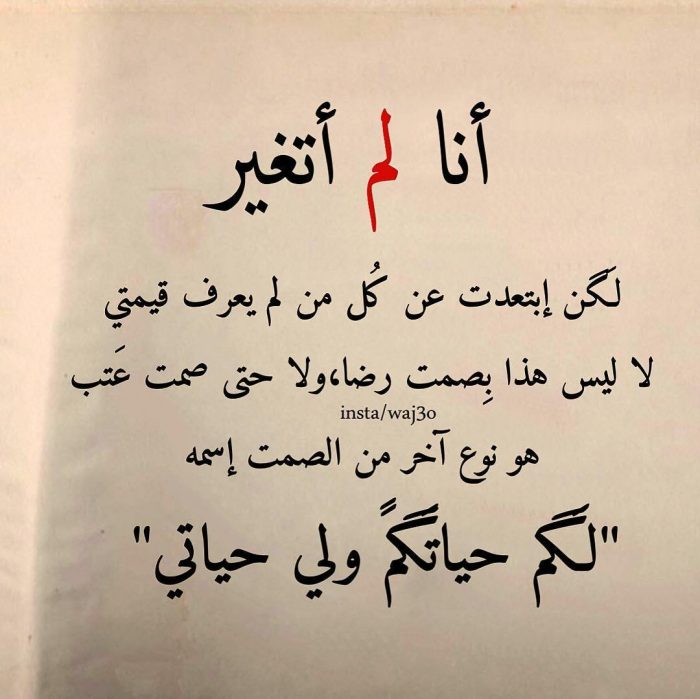 أنا لم أتغير
لَكن إبتعدت عن كُل من لم يعرف قيمتي
لا ليس هذا بِصمت رضا،ولا حتى صمت عَتب
insta/waj3o
هو نوع آخر من الصمت إسمه
"لَكَم حياتَكَمً ولي حياتي"